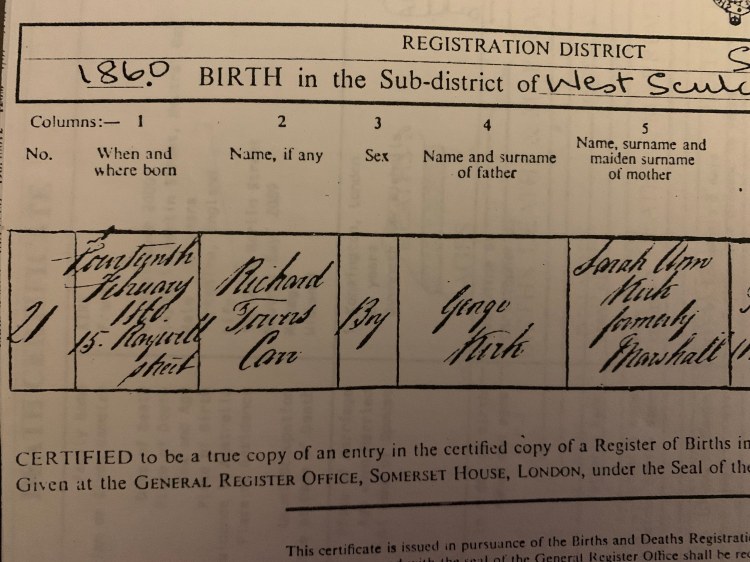 REGISTRATION DISTRICT S
1860 BIRTH in the Sub-district of West Sculc
Columns:— 1 2 3 4 5
No. When and where born Name, if any Sex Name and surname of father Name, surname and maiden surname of mother
21
Fourteenth
February
1860.
15. Raywell
Street
Richard
Towers
Carr
Boy
George
Kirk
Sarah Ann
Kirk
formerly
Marshall
CERTIFIED to be a true copy of an entry in the certified copy of a Register of Births in
Given at the GENERAL REGISTER OFFICE, SOMERSET HOUSE, LONDON, under the Seal of the
This certificate is issued in pursuance of the Births and Deaths Registrati
seal of the General Register Office shall be rec